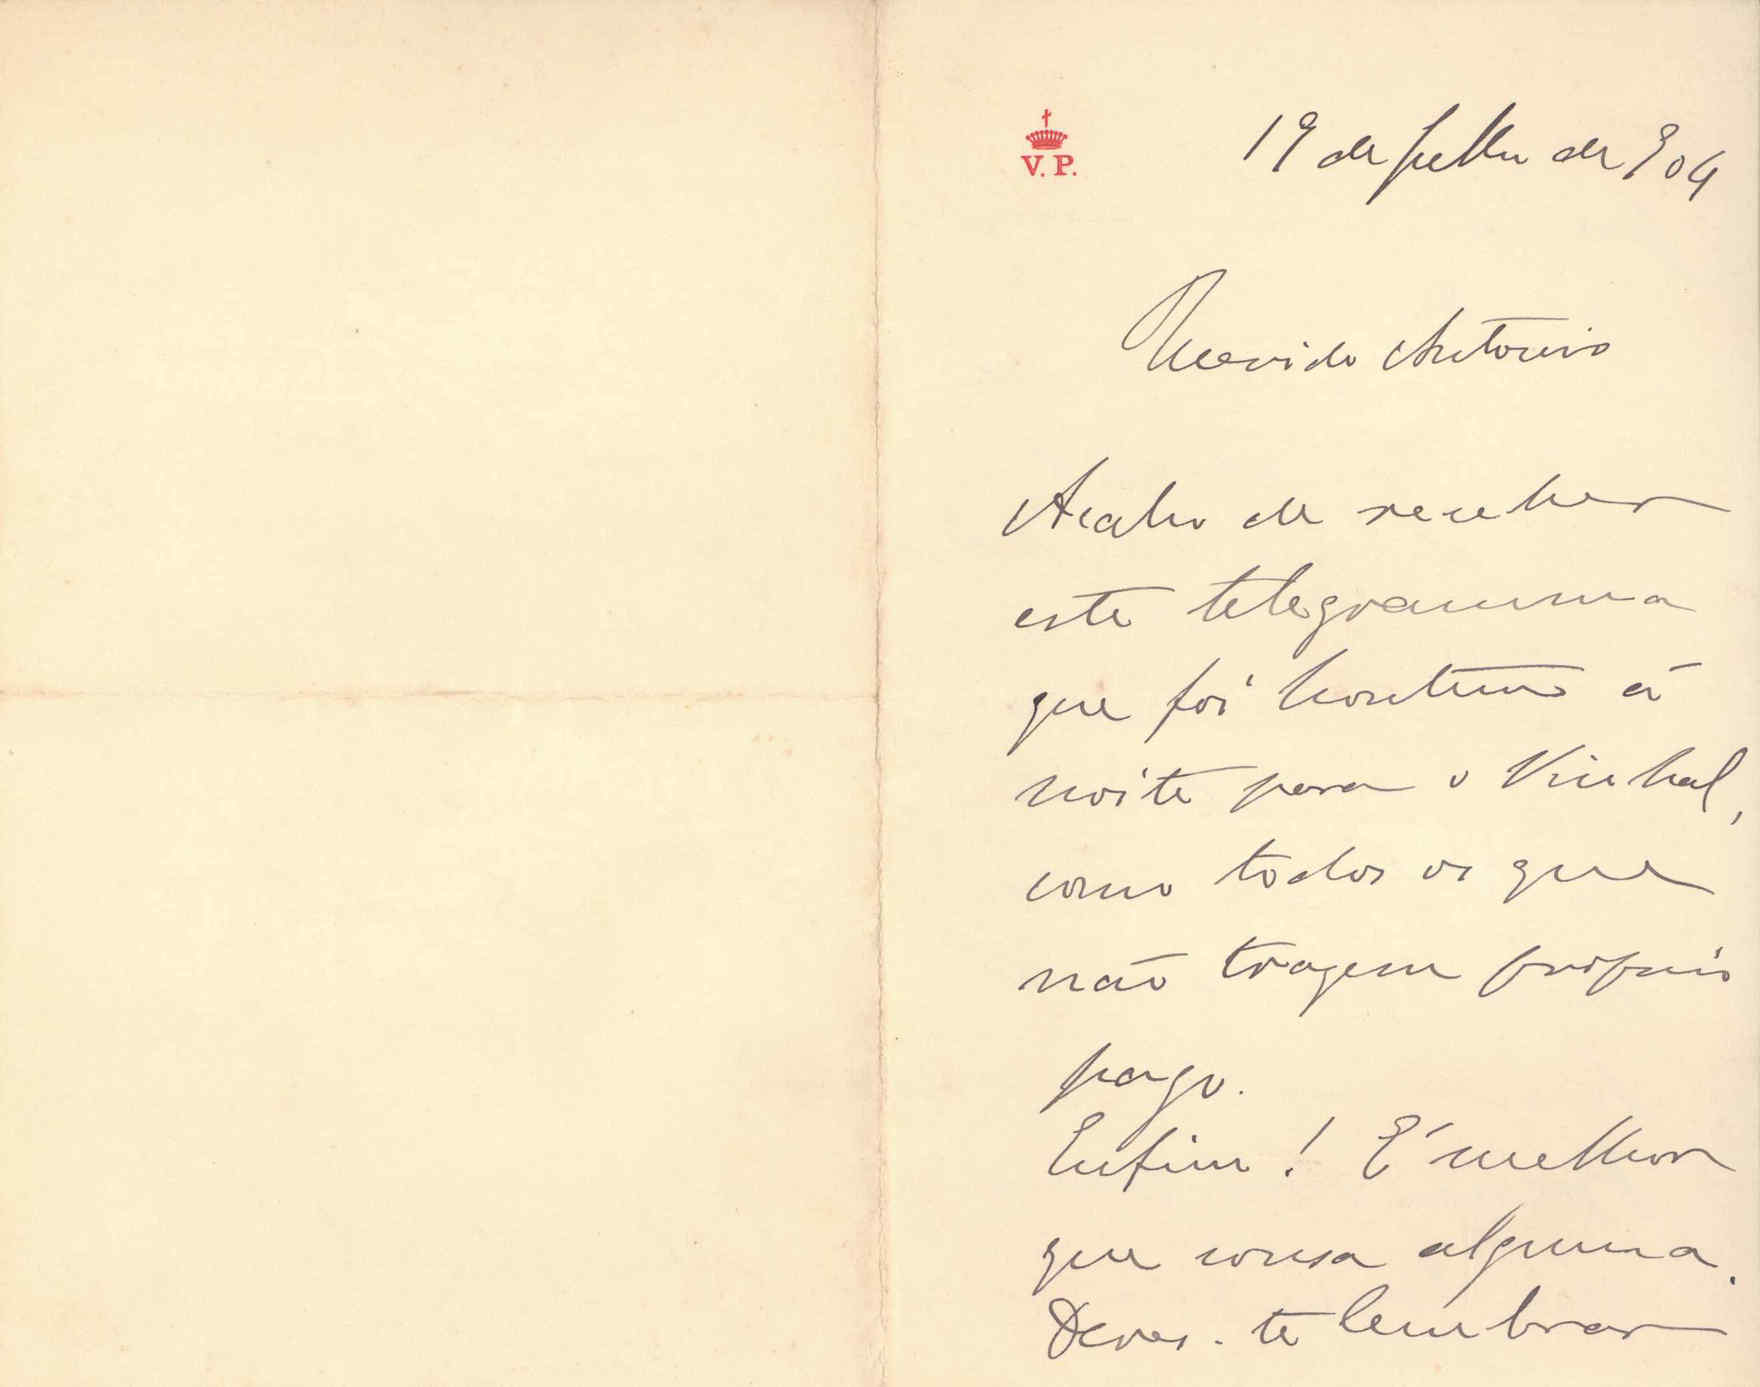 V. P.
19 de Julho de 904
Querido Antonio
Acabo de receber
este telegramma
que foi hontem á
noite para o Vinhal,
como todos os que
não tragem proprio
pago.
Enfim! É melhor
que cousa alguma.
Deves-te lembrar